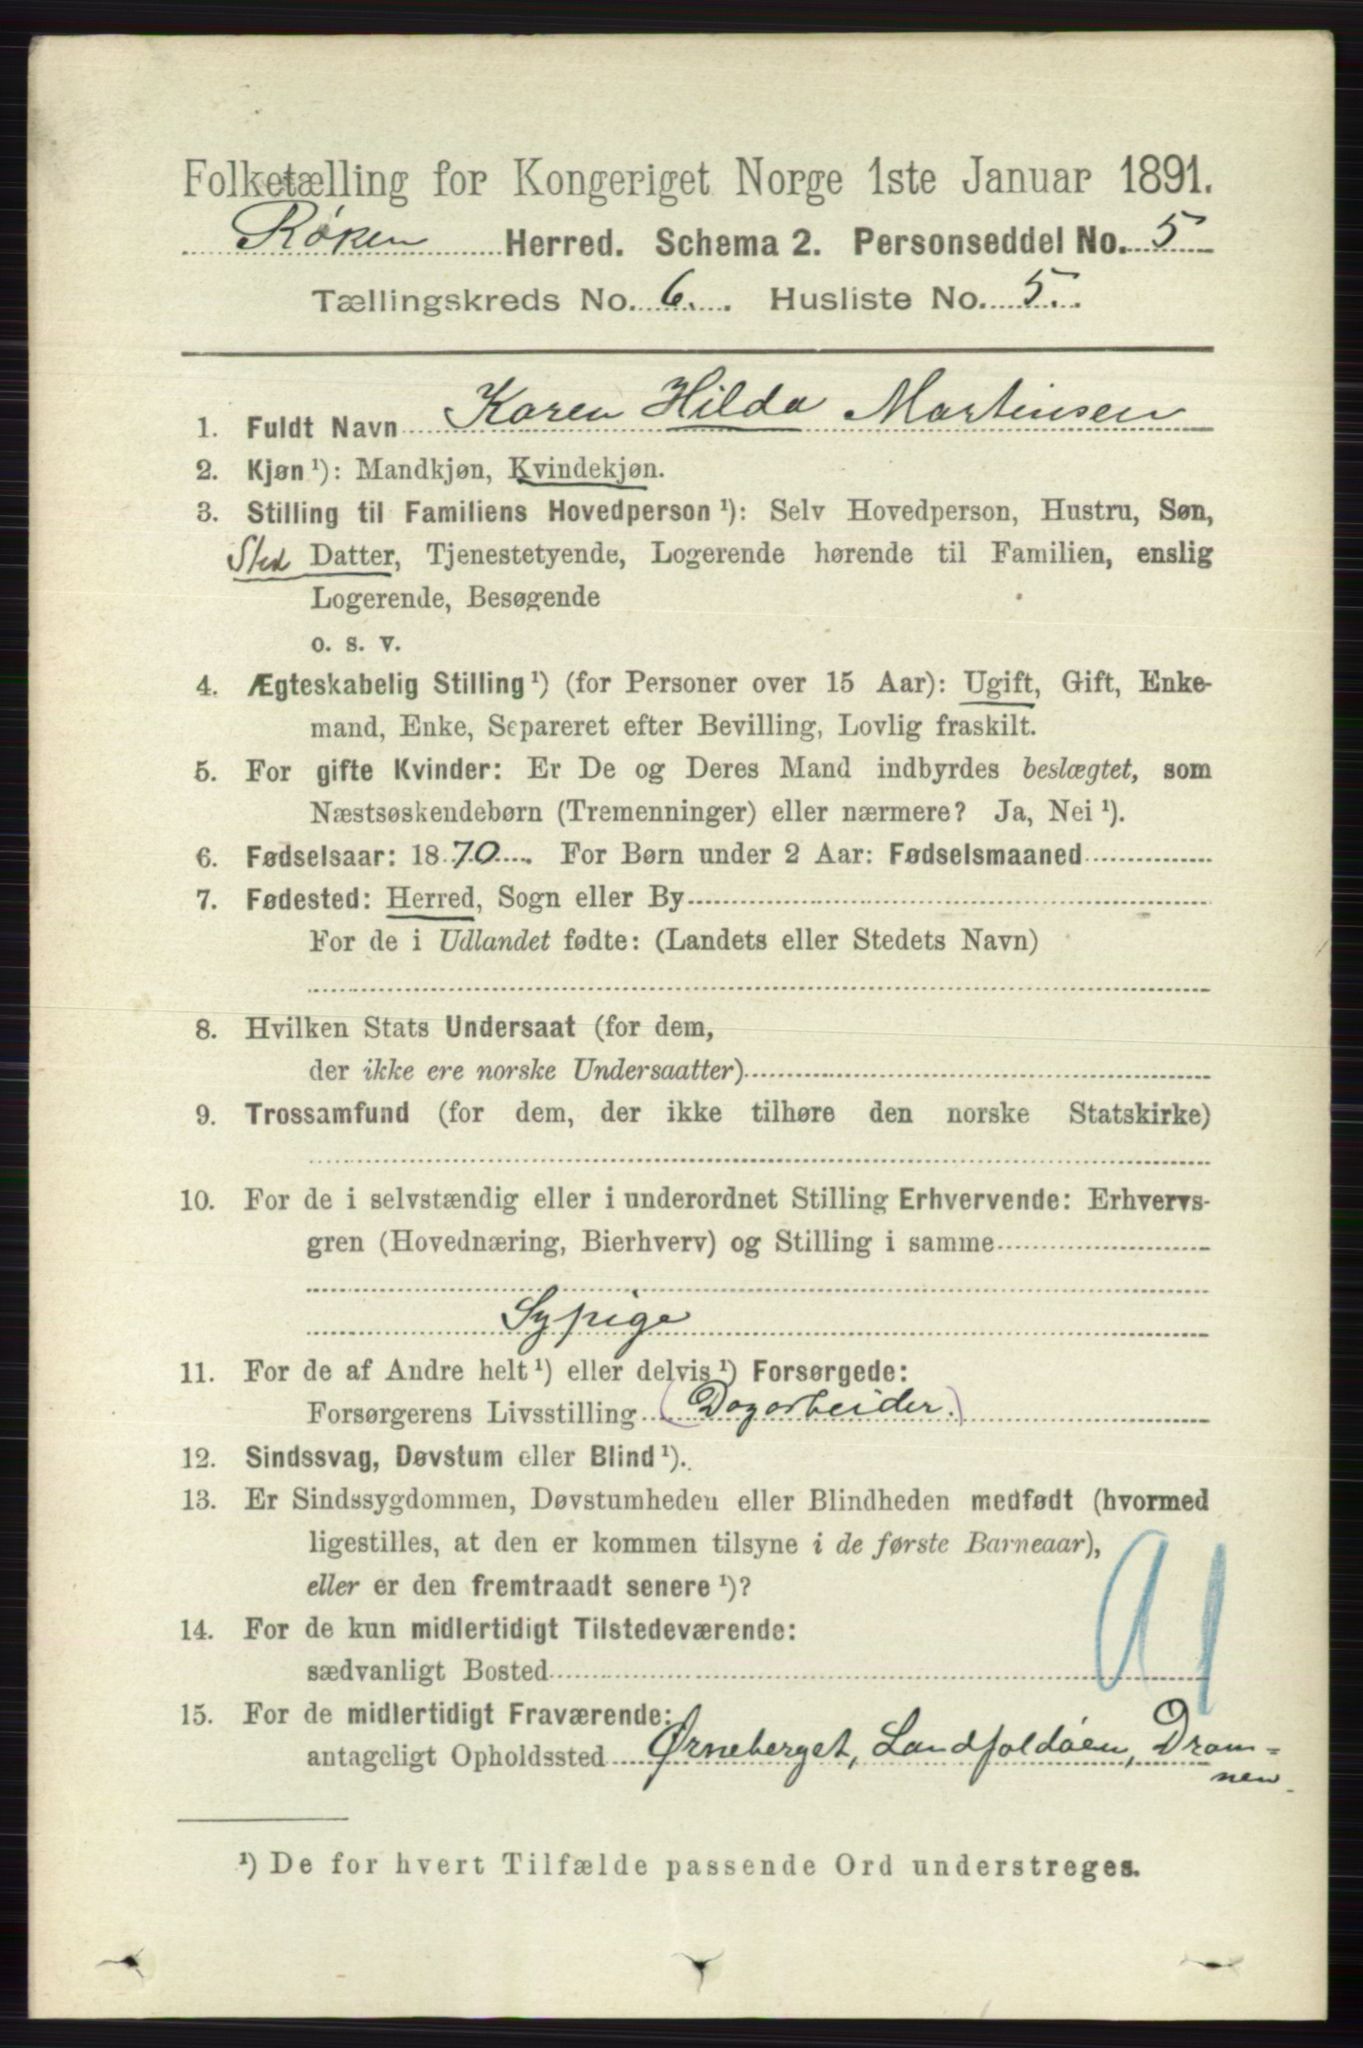 Folketælling for Kongeriget Norge 1ste Januar 1891.
Røken Herred. Schema 2. Personseddel No. 5
Tællingskreds No. 6. Husliste No. 5.
1. Fuldt Navn Karen Hilda Martinsen
2. Kjøn¹): Mandkjøn, Kvindekjøn.
3. Stilling til Familiens Hovedperson¹): Selv Hovedperson, Hustru, Søn,
Sted Datter, Tjenestetyende, Logerende hørende til Familien, enslig
Logerende, Besøgende
o. s. v.
4. Ægteskabelig Stilling¹) (for Personer over 15 Aar): Ugift, Gift, Enke-
mand, Enke, Separeret efter Bevilling, Lovlig fraskilt.
5. For gifte Kvinder: Er De og Deres Mand indbyrdes beslægtet, som
Næstsøskendebørn (Tremenninger) eller nærmere? Ja, Nei¹).
6. Fødselsaar: 1870. For Børn under 2 Aar: Fødselsmaaned
7. Fødested: Herred, Sogn eller By
For de i Udlandet fødte: (Landets eller Stedets Navn)
8. Hvilken Stats Undersaat (for dem,
der ikke ere norske Undersaatter)
9. Trossamfund (for dem, der ikke tilhøre den norske Statskirke)
10. For de i selvstændig eller i underordnet Stilling Erhvervende: Erhvervs-
gren (Hovednæring, Bierhverv) og Stilling i samme
Sypige
11. For de af Andre helt¹) eller delvis¹) Forsørgede:
Forsørgerens Livsstilling (Dagarbeider.)
12. Sindssvag, Døvstum eller Blind¹).
13. Er Sindssygdommen, Døvstumheden eller Blindheden medfødt (hvormed
ligestilles, at den er kommen tilsyne i de første Barneaar),
eller er den fremtraadt senere¹)?
14. For de kun midlertidigt Tilstedeværende:
sædvanligt Bosted
91
15. For de midlertidigt Fraværende:
antageligt Opholdssted Ørneberget, Landfaldøen, Dram=
men
¹) De for hvert Tilfælde passende Ord understreges.